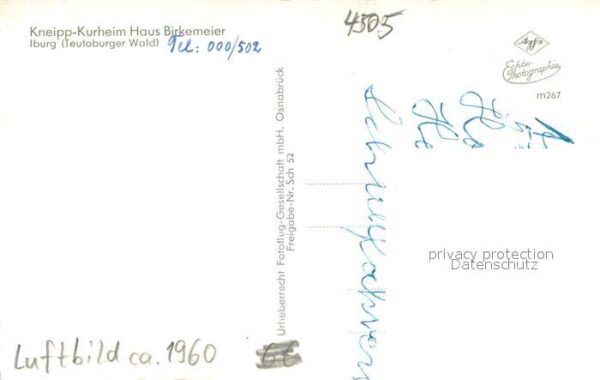 Kneipp-Kurheim Haus Birkemeier
Iburg (Teutoburger Wald)
Tel: 000/502
4505
Agfa
Echte
Photographie
m267
Urheberrecht Fotoflug-Gesellschaft mbH. Osnabrück
Freigabe-Nr. Sch 52
privacy protection
Datenschutz
Luftbild ca. 1960